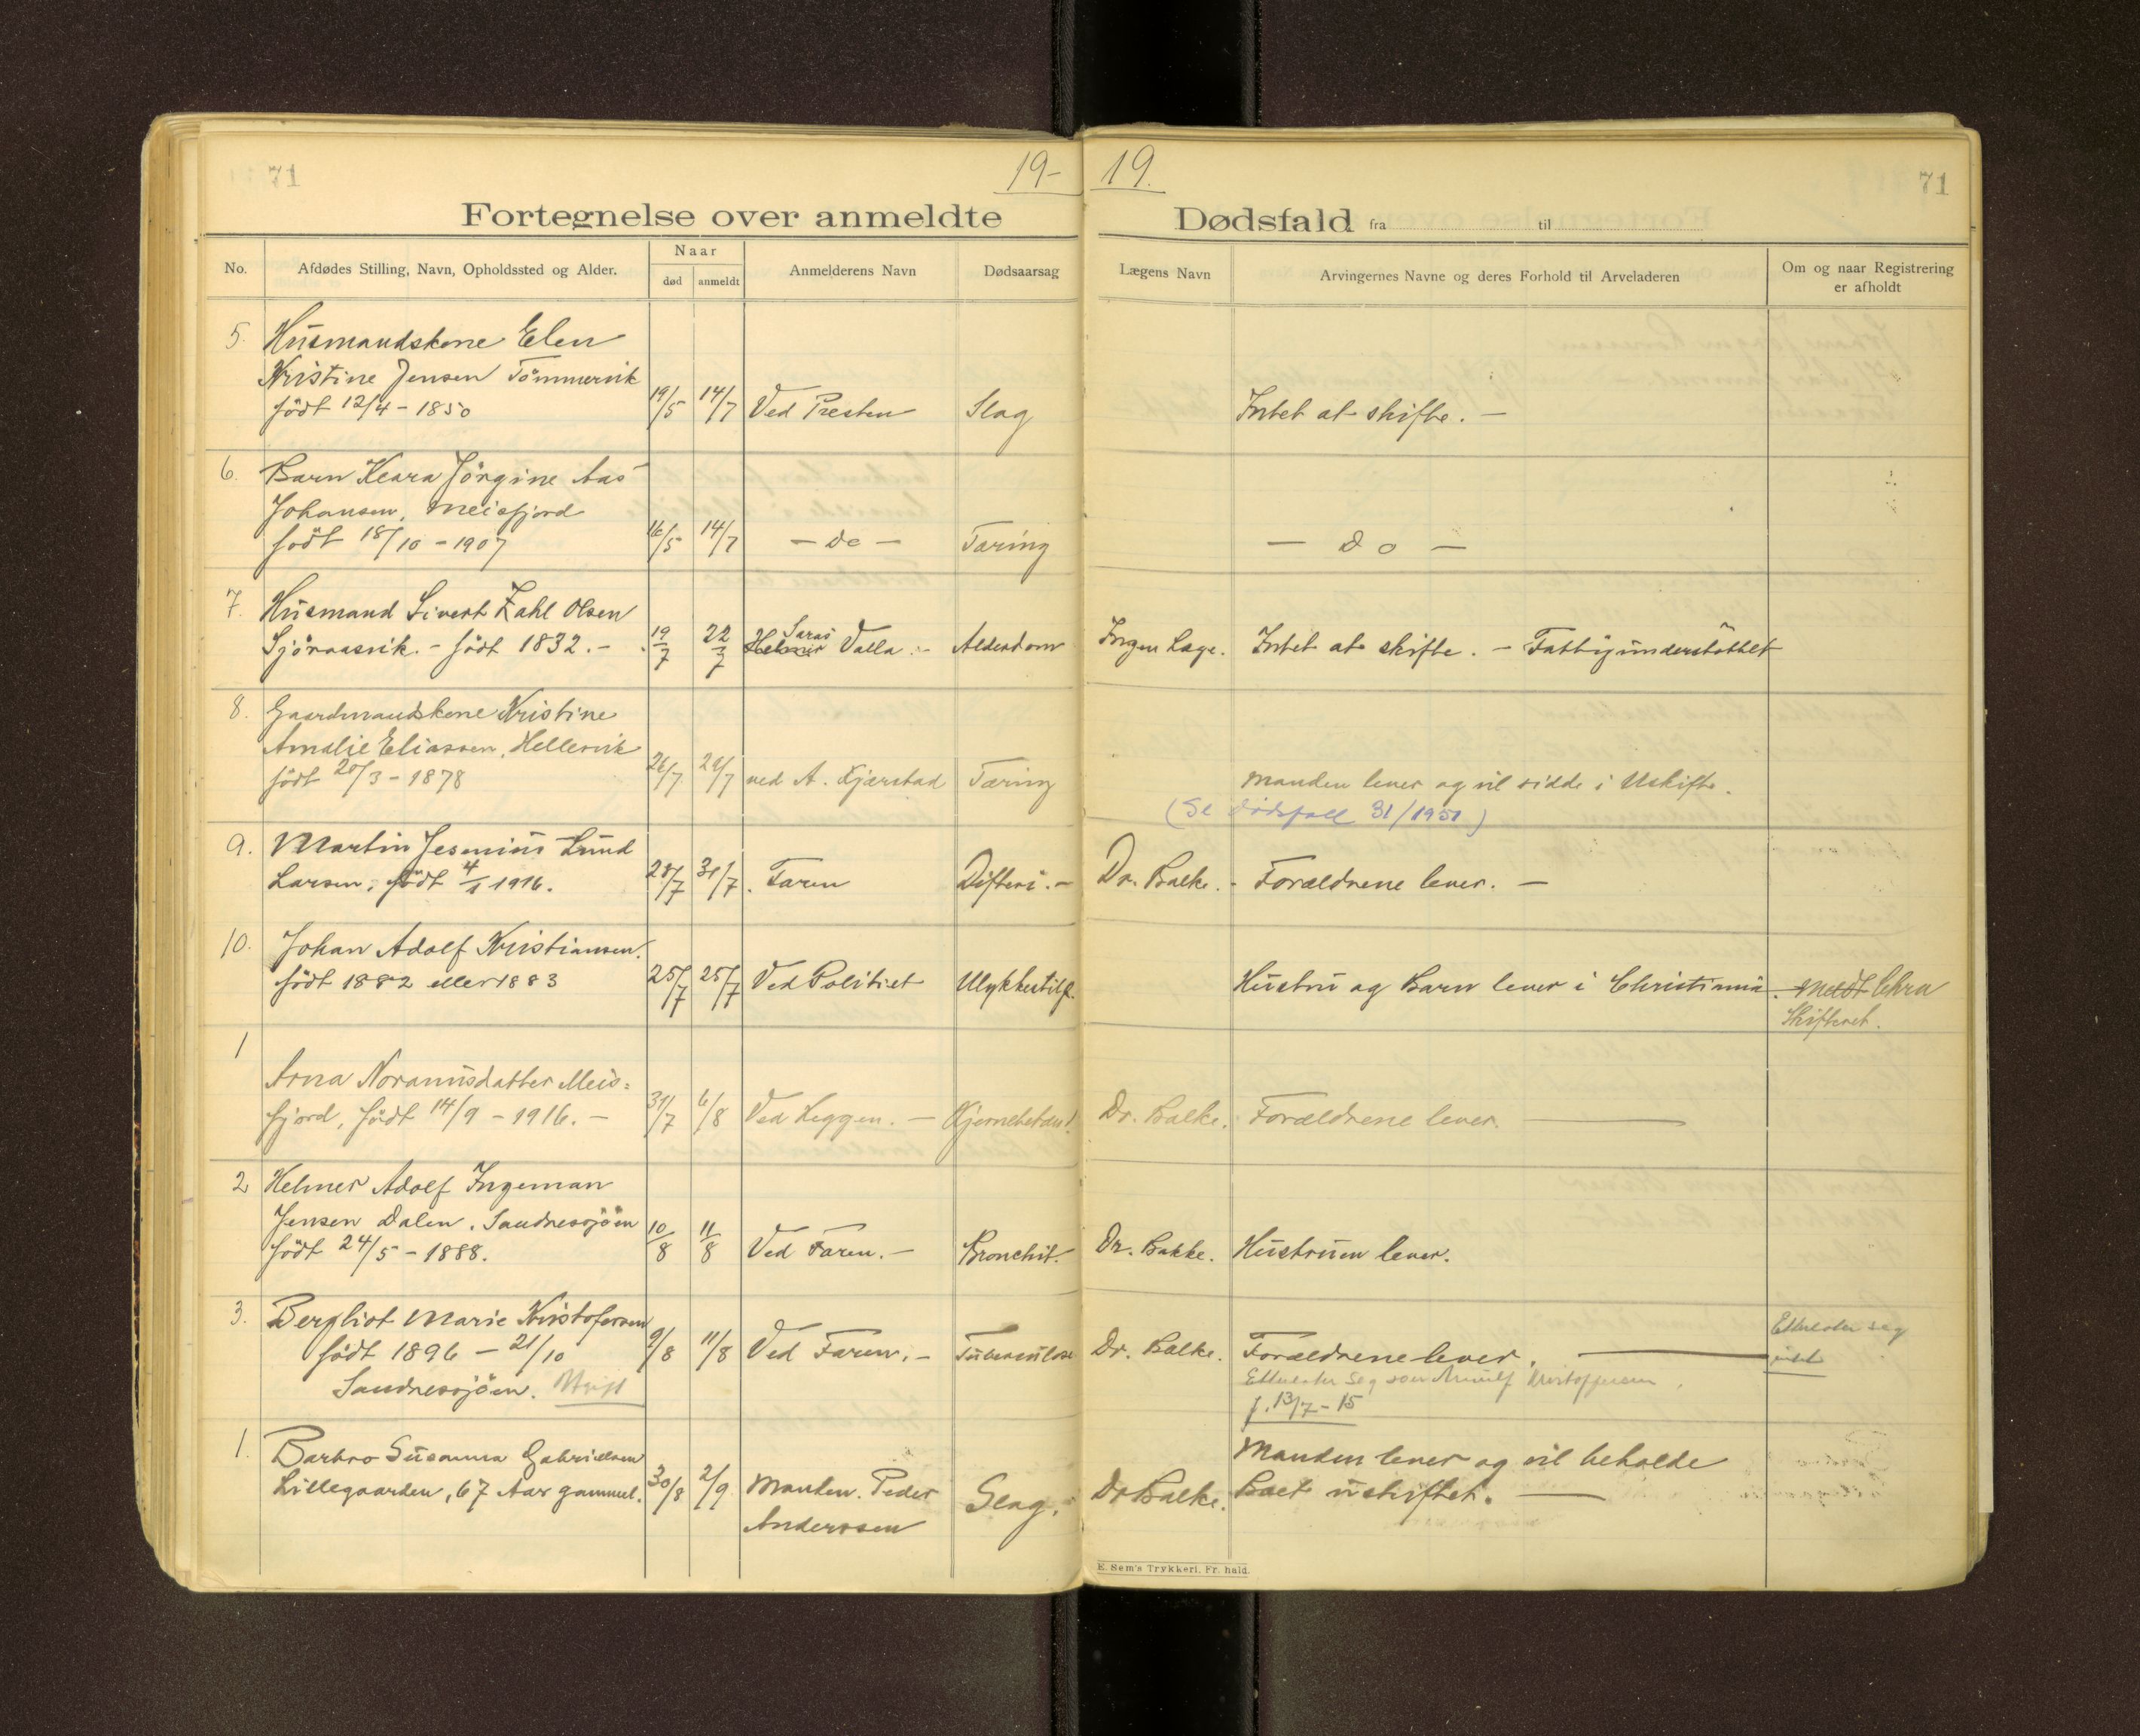 71
19-
19.
71
Fortegnelse over anmeldte
Dødsfald fra til
No.
Afdødes Stilling, Navn, Opholdssted og Alder.
Naar
død
anmeldt
Anmelderens Navn
Dødsaarsag
Lægens Navn
Arvingernes Navne og deres Forhold til Arveladeren
Om og naar Registrering
er afholdt
5. Husmandskone Elen
Kristine Jensen Tömmervik
födt 12/4 - 1850 19/5 14/7 Ved Presten Slag Intet at skifte. -
6. Barn Klara Jörgine Aas
Johansen, Meisfjord
födt 18/10 - 1907 16/5 14/7 - do - Tæring - do -
7. Husmand Sivert Zahl Olsen
Saras
Sjöraasvik. - födt 1832. - 19/7 22/7 Helmer Valla. - Alderdom Ingen Læge. Intet at skifte. - Fattigunderstöttet
8. Gaardmandskone Kristine
Amalie Eliassen, Hellesvik
födt 20/3 - 1878 26/7 29/7 ved A. Kjærstad Tæring Manden lever og vil sidde i Uskifte.
(Se dødsfall 31/1951)
9. Martin Jesenius Lund
Larsen, födt 4/1 1916. 28/7 31/7. Faren Difteri. - Dr. Balke. - Forældrene lever. -
10. Johan Adolf Kristiansen.
födt 1882 eller 1883 25/7 25/7 Ved Politiet Ulykkestilf. Hustru og Barn lever i Christiania. Medt Chra
Skifteret.
1
Arna Noranusdatter Meis=
fjord, födt 14/9 - 1916. - 31/7 6/8 Ved Heggen. - Hjernebetænd. Dr. Balke. Forældrene lever.
2 Helmer Adolf Ingeman
Jensen Dalen. Sandnessjöen
födt 24/5 - 1888. 10/8 11/8 Ved Faren. - Bronchit. Dr. Bakke. Hustruen lever.
3. Bergliot Marie Kristofersen
födt 1896 - 21/10 9/8 11/8 Ved Faren. - Tuberculose Dr. Balke. Forældrene lever. Efterlater seg
intet
Sandnessjöen. Efterlater seg sön Arnulf Kristoffersen,
f. 13/7 - 15
1. Barbro Susanna Gabrielsen
Lillegaarden, 67 Aar gammel. 30/8 2/9 Manden. Peder
Anderssen
Slag. Dr Balke. Manden lever og vil beholde
Boet uskiftet.
E. Sem's Trykkeri, Fr. hald.